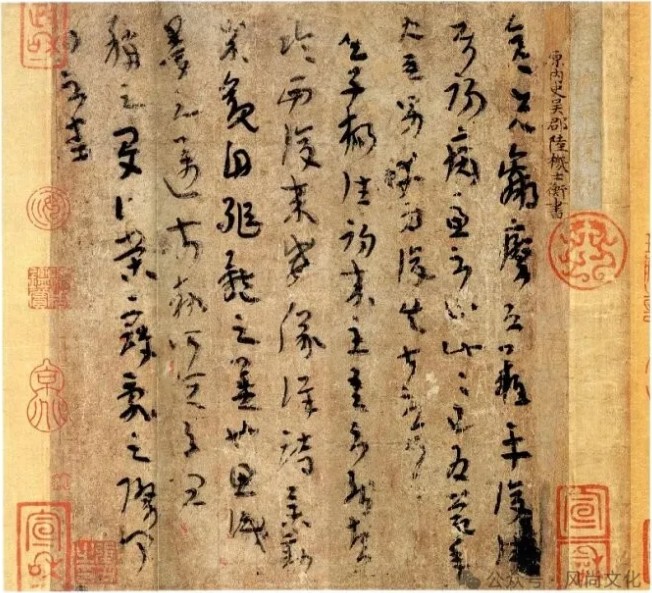 原内史吳郡陸機士衡書
彦先羸瘵恐難平復往屬
初病慮不止此此已為慶承
使唯男幸為復失前憂耳
吳子楊往初來主吾不能盡
臨西復來威儀詳跱舉動
成觀自軀體之美也思識
量之邁前執所恒有宜
稱之夏伯榮寇亂之際聞
問不悉
宣和
公众号·风尚文化